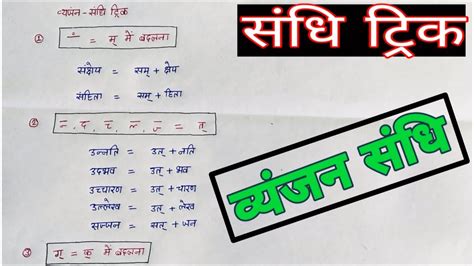 व्यंजन-संधि ट्रिक
① ं = म् में बदलना
संक्षेप = सम् + क्षेप
संहिता = सम् + हिता
② न्, द्, च्, ल्, ज् = त्
उन्नति = उत् + नति
उद्भव = उत् + भव
उच्चारण = उत् + चारण
उल्लेख = उत् + लेख
सज्जन = सत् + जन
③ ग् = क् में बदलना
संधि ट्रिक
व्यंजन संधि